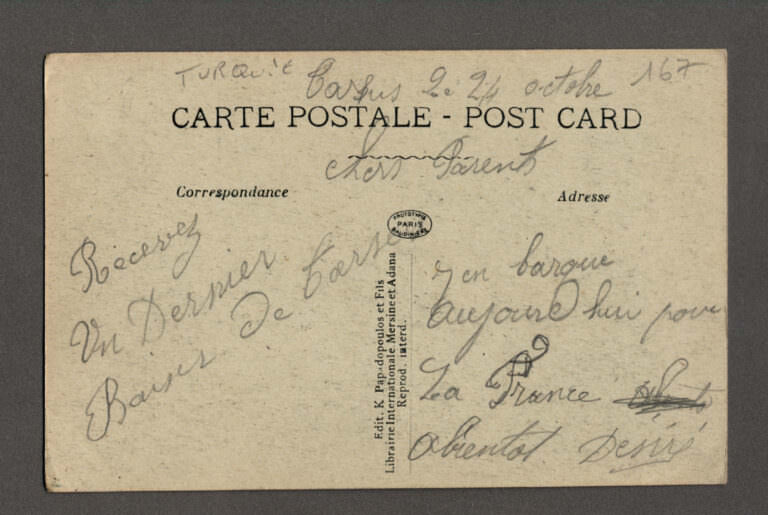 TURQUIE
Tarsus le 24 octobre 167
CARTE POSTALE - POST CARD
chers Parents
Correspondance
Adresse
PHOTOTYPIE
PARIS
BAUDINIÈRE
Recevez
Un Dernier
Baiser de Tarse
Edit. K Papadopoulos et Fils
Librairie Internationale Mersine et Adana
Reprod. interd.
J en barque
aujourd hui pour
La France
abientot Desiré